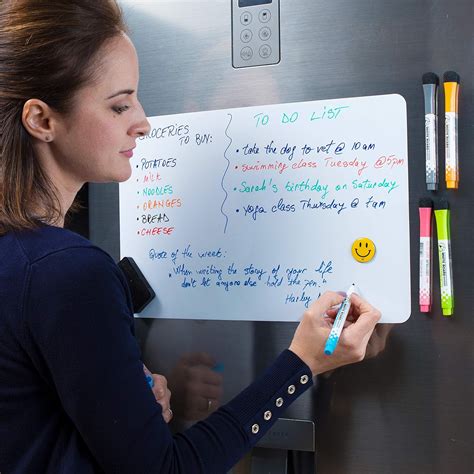 GROCERIES
TO BUY:
POTATOES
MILK
NOODLES
ORANGES
BREAD
CHEESE
TO DO LIST
take the dog to vet @ 10 am
Swimming class Tuesday @5pm
Sarah's birthday on Saturday
yoga class Thursday @ 7am
Quote of the week:
"When writing the story of your life
don't let anyone else hold the pen."
Harley